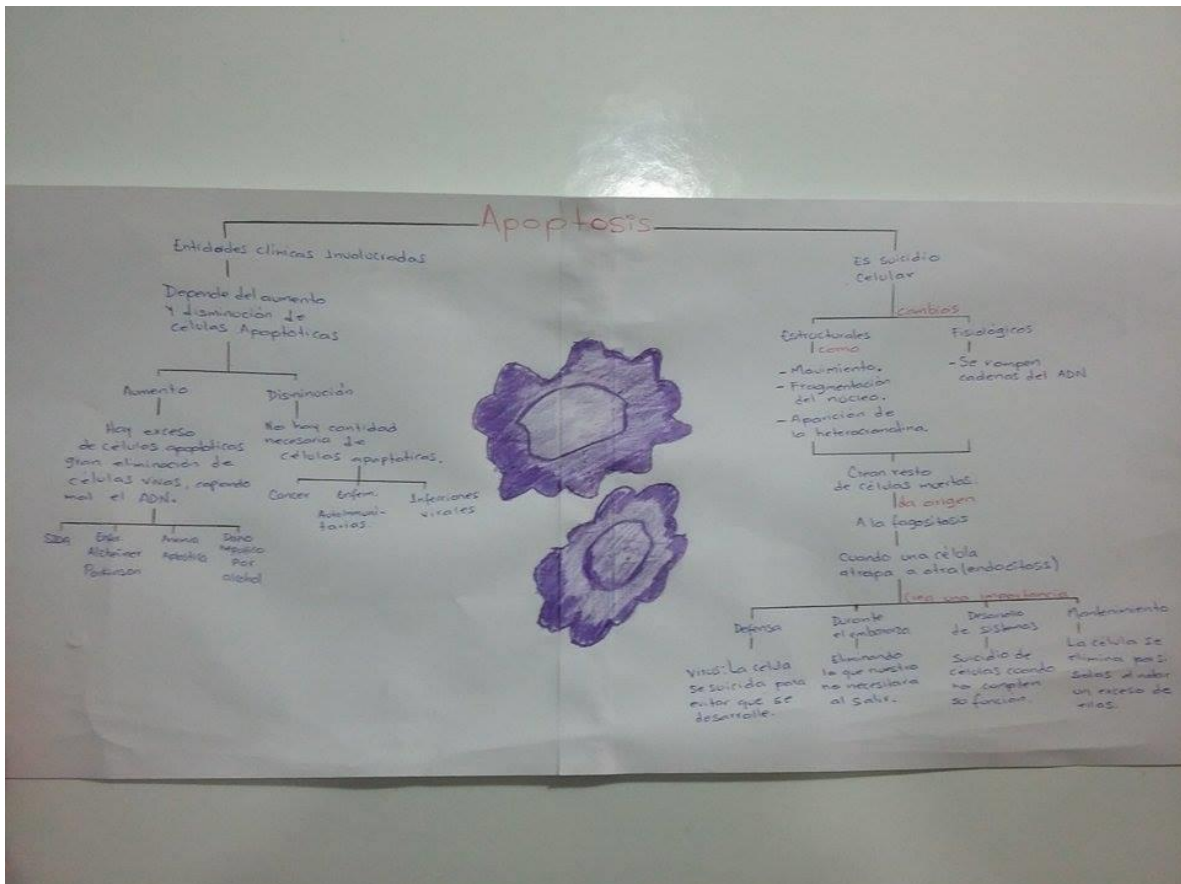 Apoptosis
Entidades clinicas involucradas
Depende del aumento
y disminoción de
celulas Apoptoticas
Aumento
Hay exceso
de celulas apoptoticas
gran eliminación de
celulas vivas, copiando
mal el ADN.
SIDA
Enfer.
Alzheimer
Parkinson
Anemia
Aplastica
Daño
Hepatico
Por
alcohol
Disminoción
No hay cantidad
necesaria de
células apoptoticas.
Cancer
Enferm.
Autoinmuni-
tarias.
Infecciones
virales
Es suicidio
Celular
cambios
Estructurales
como
- Movimiento.
- Fragmentación
del nucleo.
- Aparicion de
la heterocromatina.
Fisiológicos
- Se rompen
cadenas del ADN
Crean resto
de células muertas.
da origen
A la fagositosis
Cuando una célula
atrapa a otra (endocitosis)
Crea una importancia
Defensa
Virus: La celula
se suicida para
evitar que se
desarrolle.
Durante
el embarazo
Eliminando
lo que nuestro
no necesitara
al Salir.
Desarrollo
de sistemas
Suicidio de
células cuando
no cumplen
su función.
Mantenimiento
La célula se
elimina por si
solas al haber
un exceso de
ellas.